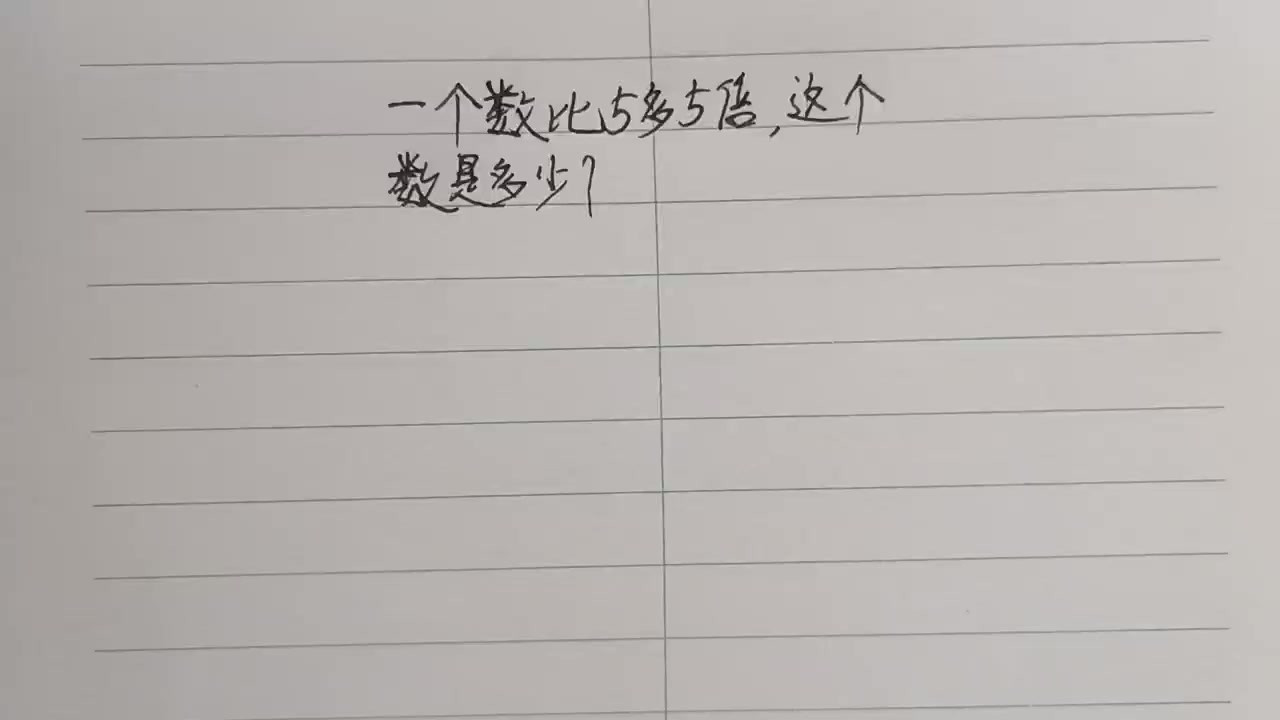 一个数比5多5倍,这个
数是多少?